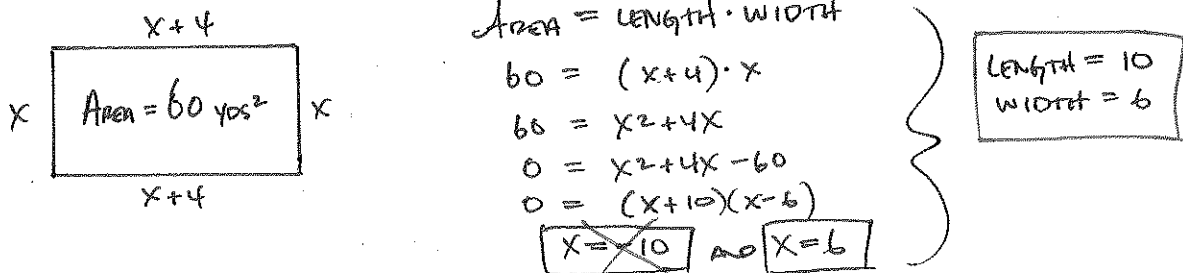 x+4
x
AREA = 60 YDS²
x
x+4
AREA = LENGTH · WIDTH
60 = (x+4)·x
60 = x²+4x
0 = x²+4x-60
0 = (x+10)(x-6)
x=-10 AND x=6
LENGTH = 10
WIDTH = 6